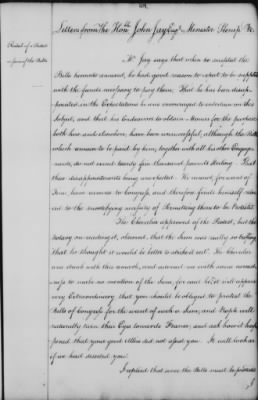 Letter from The Honble John Jay Esqr Minister Plenipo &c.
Mr Jay says that when he accepted the
Bills hereunto annexed, he had good reason to expect to be supplied
with the funds necessary to pay them. That he has been disap-
pointed in the Expectations he was encouraged to entertain on this
Subject, and that his Endeavors to obtain Monies for the purpose
both here and elsewhere, have been unsuccessful, although the Bills
which remain to be paid by him, together with all his other Engage-
ments, do not exceed twenty five thousand pounds sterling. That
these disappointments being unexpected. He cannot, for want of
Time, have recourse to Congress, and therefore finds himself redu-
ced to the mortifying necessity of permitting them to be Protested
The Chevalier approved of the Protest, but the
Notary on reading it, observed, that the Sum was really so trifling
that he thought it would be better to strike it out. The Chevalier
was struck with this remark, and advised me with some earnest-
ness to make no mention of the Sum, for said he, it will appear
very Extraordinary that you should be obliged to protest the
Bills of Congress for the want of such a Sum, and People will
naturally turn their Eyes towards France, and ask how it hap-
pened that your good Allies did not assist you. It will look as
if we had deserted you.
I replied that since the Bills must be protested